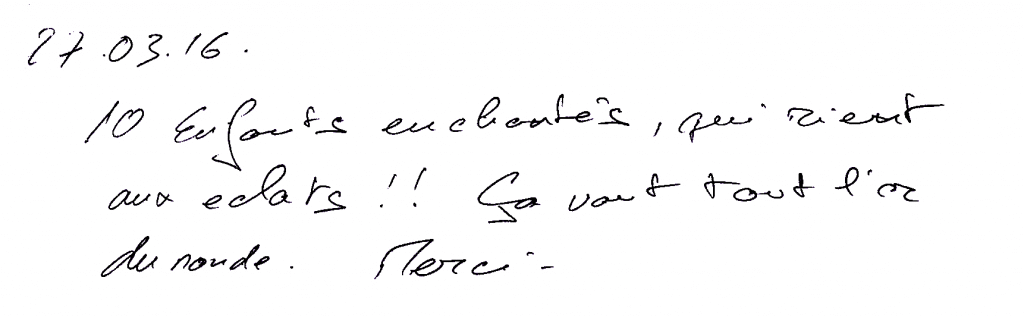 27.03.16.
10 Enfants enchantés, qui rient
aux eclats !! Ça vaut tout l'or
du monde. Merci -